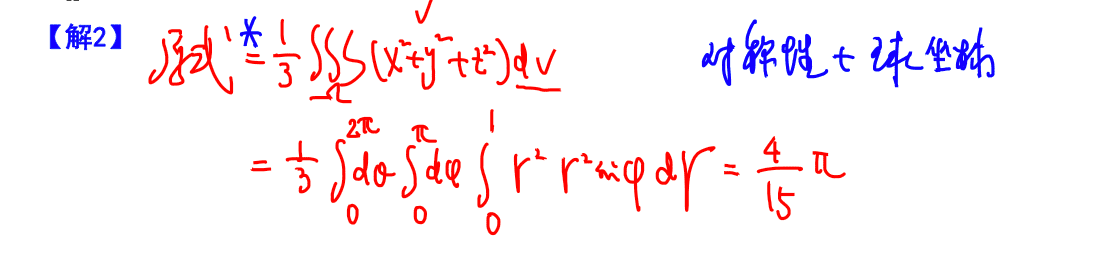 【解2】 原式 * = 1/3 ∭_Ω (x²+y²+z²)dv 对称性 + 球坐标
= 1/3 ∫₀^{2π} dθ ∫₀^{π} dφ ∫₀^{1} r² r² sinφ dr = 4/15 π